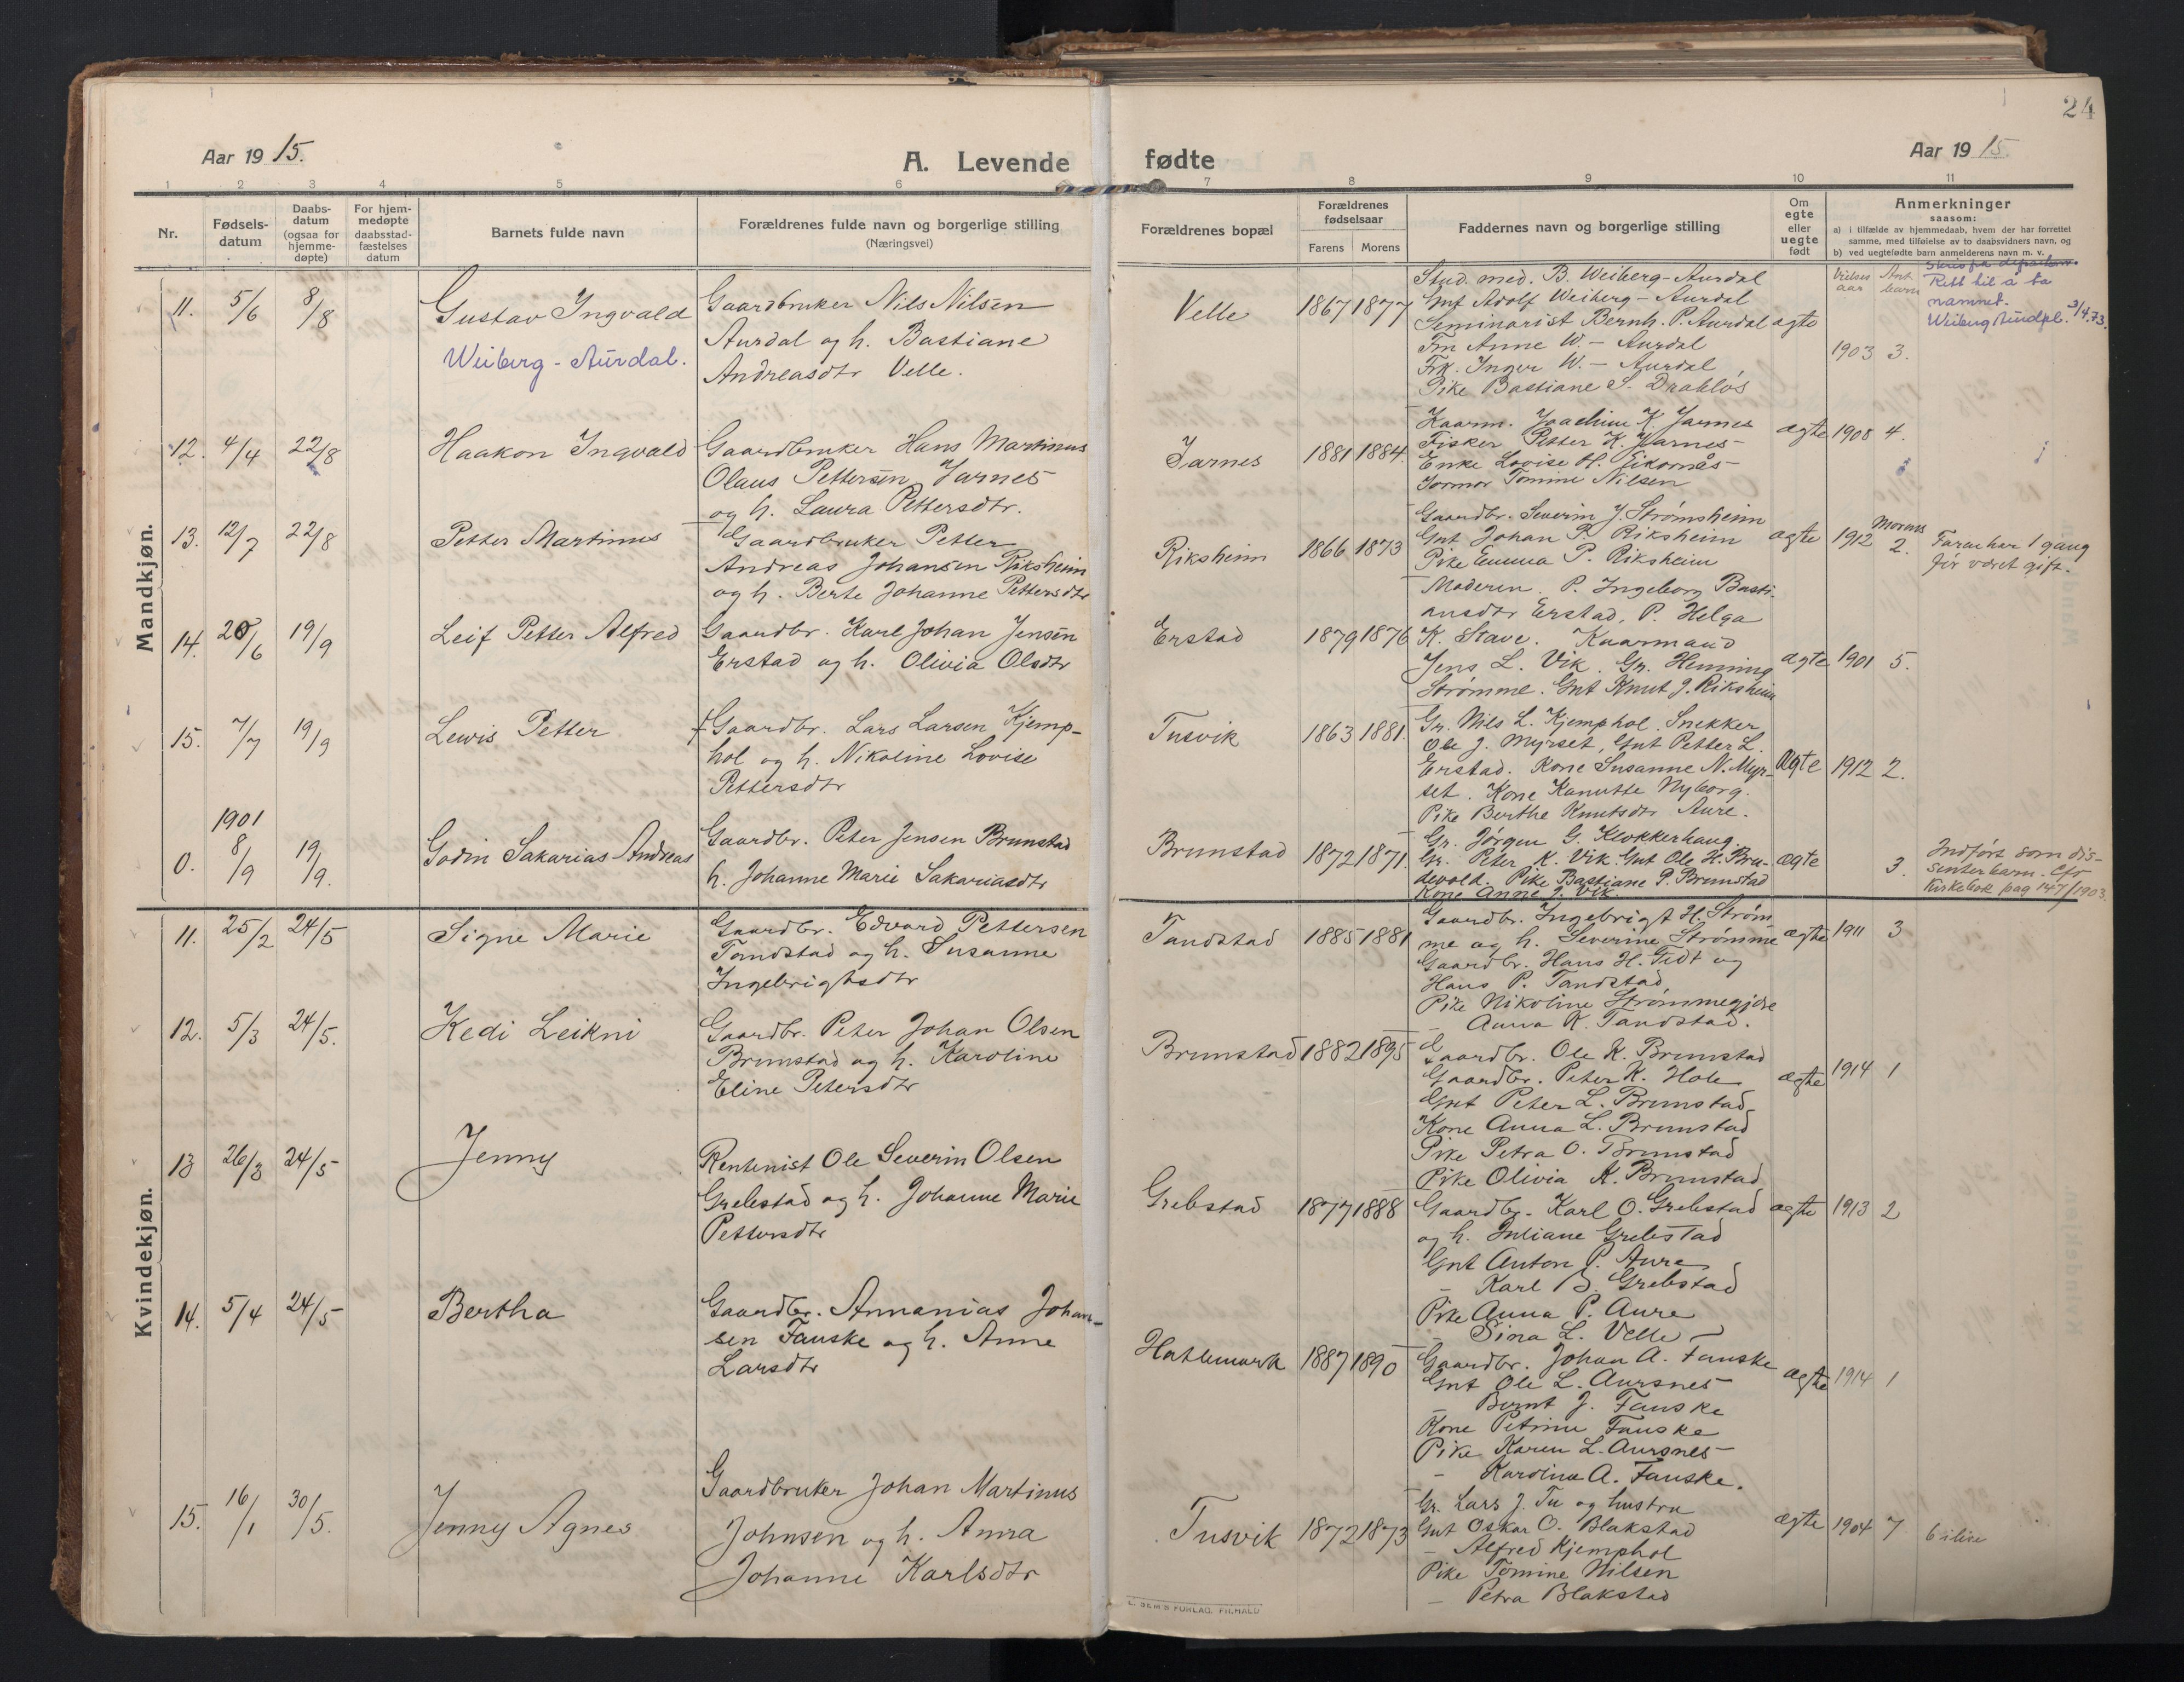 24
Aar 19 15.
A. Levende
fødte
Aar 19 15.
1 2 3 4 5 6 7 8 9 10 11
Nr.
Fødsels-
datum
Daabs-
datum
(ogsaa for
hjemme-
døpte)
For hjem-
medøpte
daabsstad-
fæstelses
datum
Barnets fulde navn
Forældrenes fulde navn og borgerlige stilling
(Næringsvei)
Forældrenes bopæl
Forældrenes
fødselsaar
Farens Morens
Faddernes navn og borgerlige stilling
Om
egte
eller
uegte
født
Anmerkninger
saasom:
a) i tilfælde av hjemmedaab, hvem der har forrettet
samme, med tilføielse av to daabsvidners navn, og
b) ved uegtefødte barn anmelderens navn m. v.
Mandkjøn.
11. 5/6 8/8
Gustav Ingvald
Weiberg-Aurdal.
Gaardbruker Nils Nilsen
Aurdal og h. Bastiane
Andreasdtr Velle.
Velle 1867 1877
Stud. med. B. Weiberg-Aurdal
Gut Adolf Weiberg-Aurdal
Seminarist Bernh. P. Aurdal
Fru Anne W.- Aurdal
Frk. Inger W.- Aurdal
Pike Bastiane S. Drabløs
ægte
Vielses
aar
Ant.
barn
1903 3.
Rett til å ta
namnet.
3/4.73.
12. 4/4 22/8
Haakon Ingvald
Gaardbruker Hans Martinus
Olaus Pettersen Jarnes
og h. Laura Pettersdtr.
Jarnes 1881 1884.
Kaarm. Joachim K. Jarnes
Fisker Petter K. Jarnes
Enke Lovise H. Eikornås
Jormor Tomine Nilsen
ægte 1908 4.
13. 12/7 22/8
Petter Martinus
Gaardbruker Petter
Andreas Johansen Riksheim
og h. Berte Johanne Pettersdtr
Riksheim 1866 1873
Gaardbr. Severin J. Strømsheim
Gut Johan P. Riksheim
Pike Emma P. Riksheim
ægte 1912 Morens
2. Faren har 1 gang
før været gift.
14. 20/6 19/9
Leif Petter Alfred
Gaardbr. Karl Johan Jensen
Erstad og h. Olivia Olsdtr
Erstad 1879 1876
Moderen. P. Ingeborg Basti-
ansdtr Erstad, P. Helga
K. Stave. Kaarmand
Jens L. Vik. Gr. Henning
Strømme. Gut Knut J. Riksheim
ægte 1901 5.
15. 7/7 19/9
Lewis Petter
Gaardbr. Lars Larsen Kjemp-
hol og h. Nikoline Lovise
Pettersdtr
Tusvik 1863 1881.
Gr. Nils L. Kjemphol. Snekker
Ole J. Myrset, Gut Petter L.
Erstad. Kone Susanne N. Myr-
set. Kone Kanutte Nyborg.
Pike Berthe Knutsdtr Aure.
Ægte 1912 2.
0. 1901
8/9 19/9.
Godin Sakarias Andreas
Gaardbr. Peter Jensen Brunstad
h. Johanne Marie Sakariasdtr
Brunstad 1872 1871.
Gr. Jørgen G. Klokkerhaug
Gr. Peter K. Vik Gut Ole H. Bru-
devold. Pike Bastiane P. Brunstad
Kone Anne J. Vik
ægte 3.
Indført som dis-
senterbarn. Cfr
Kirkebok pag 147/1903.
Kvindekjøn.
11. 25/2 24/5
Signe Marie
Gaardbr. Edvard Pettersen
Tandstad og h. Susanne
Ingebrigtsdtr
Tandstad 1885 1881
Gaardbr. Ingebrigt H. Strøm
me og h. Severine Strømme
Gaardbr. Hans H. Fedt og
Hans P. Tandstad
Pike Nikoline Strømmegjære
- Anna K. Tandstad.
ægte 1911 3
12. 5/3 24/5.
Kedi Leikni
Gaardbr. Peter Johan Olsen
Brunstad og h. Karoline
Eline Petersdtr
Brunstad 1882 1895
Gaardbr. Ole K. Brunstad
Gaardbr. Peter K. Hole
Gut Peter L. Brunstad
Kone Anna L. Brunstad
Pike Petra O. Brunstad
Pike Olivia K. Brunstad
ægte 1914 1
13 26/3 24/5
Jenny
Rentenist Ole Severin Olsen
Grebstad og h. Johanne Marie
Pettersdtr
Grebstad 1877 1888
Gaardbr. Karl O. Grebstad
og h. Juliane Grebstad
Gut Anton P. Aure
- Karl B. Grebstad
Pike Anna P. Aure
- Sina L. Velle
ægte 1913 2
14. 5/4 24/5
Bertha
Gaardbr. Annanias Johan-
sen Fauske og h. Anne
Larsdtr
Hatlemark 1887 1890
Gaardbr. Johan A. Fauske
Gut Ole L. Aursnes
- Bernt J. Fauske
Kone Petrine Fauske
Pike Karen L. Aursnes
- Karoline A. Fauske.
ægte 1914 1
15. 16/1 30/5.
Jenny Agnes
Gaardbruker Johan Martinus
Johnsen og h. Anna
Johanne Karlsdtr
Tusvik 1872 1873
Gr. Lars J. Tu og hustru
Gut Oskar O. Blakstad
- Alfred Kjemphol
Pike Tomine Nilsen
- Petra Blakstad
ægte 1904 7 6 ilive